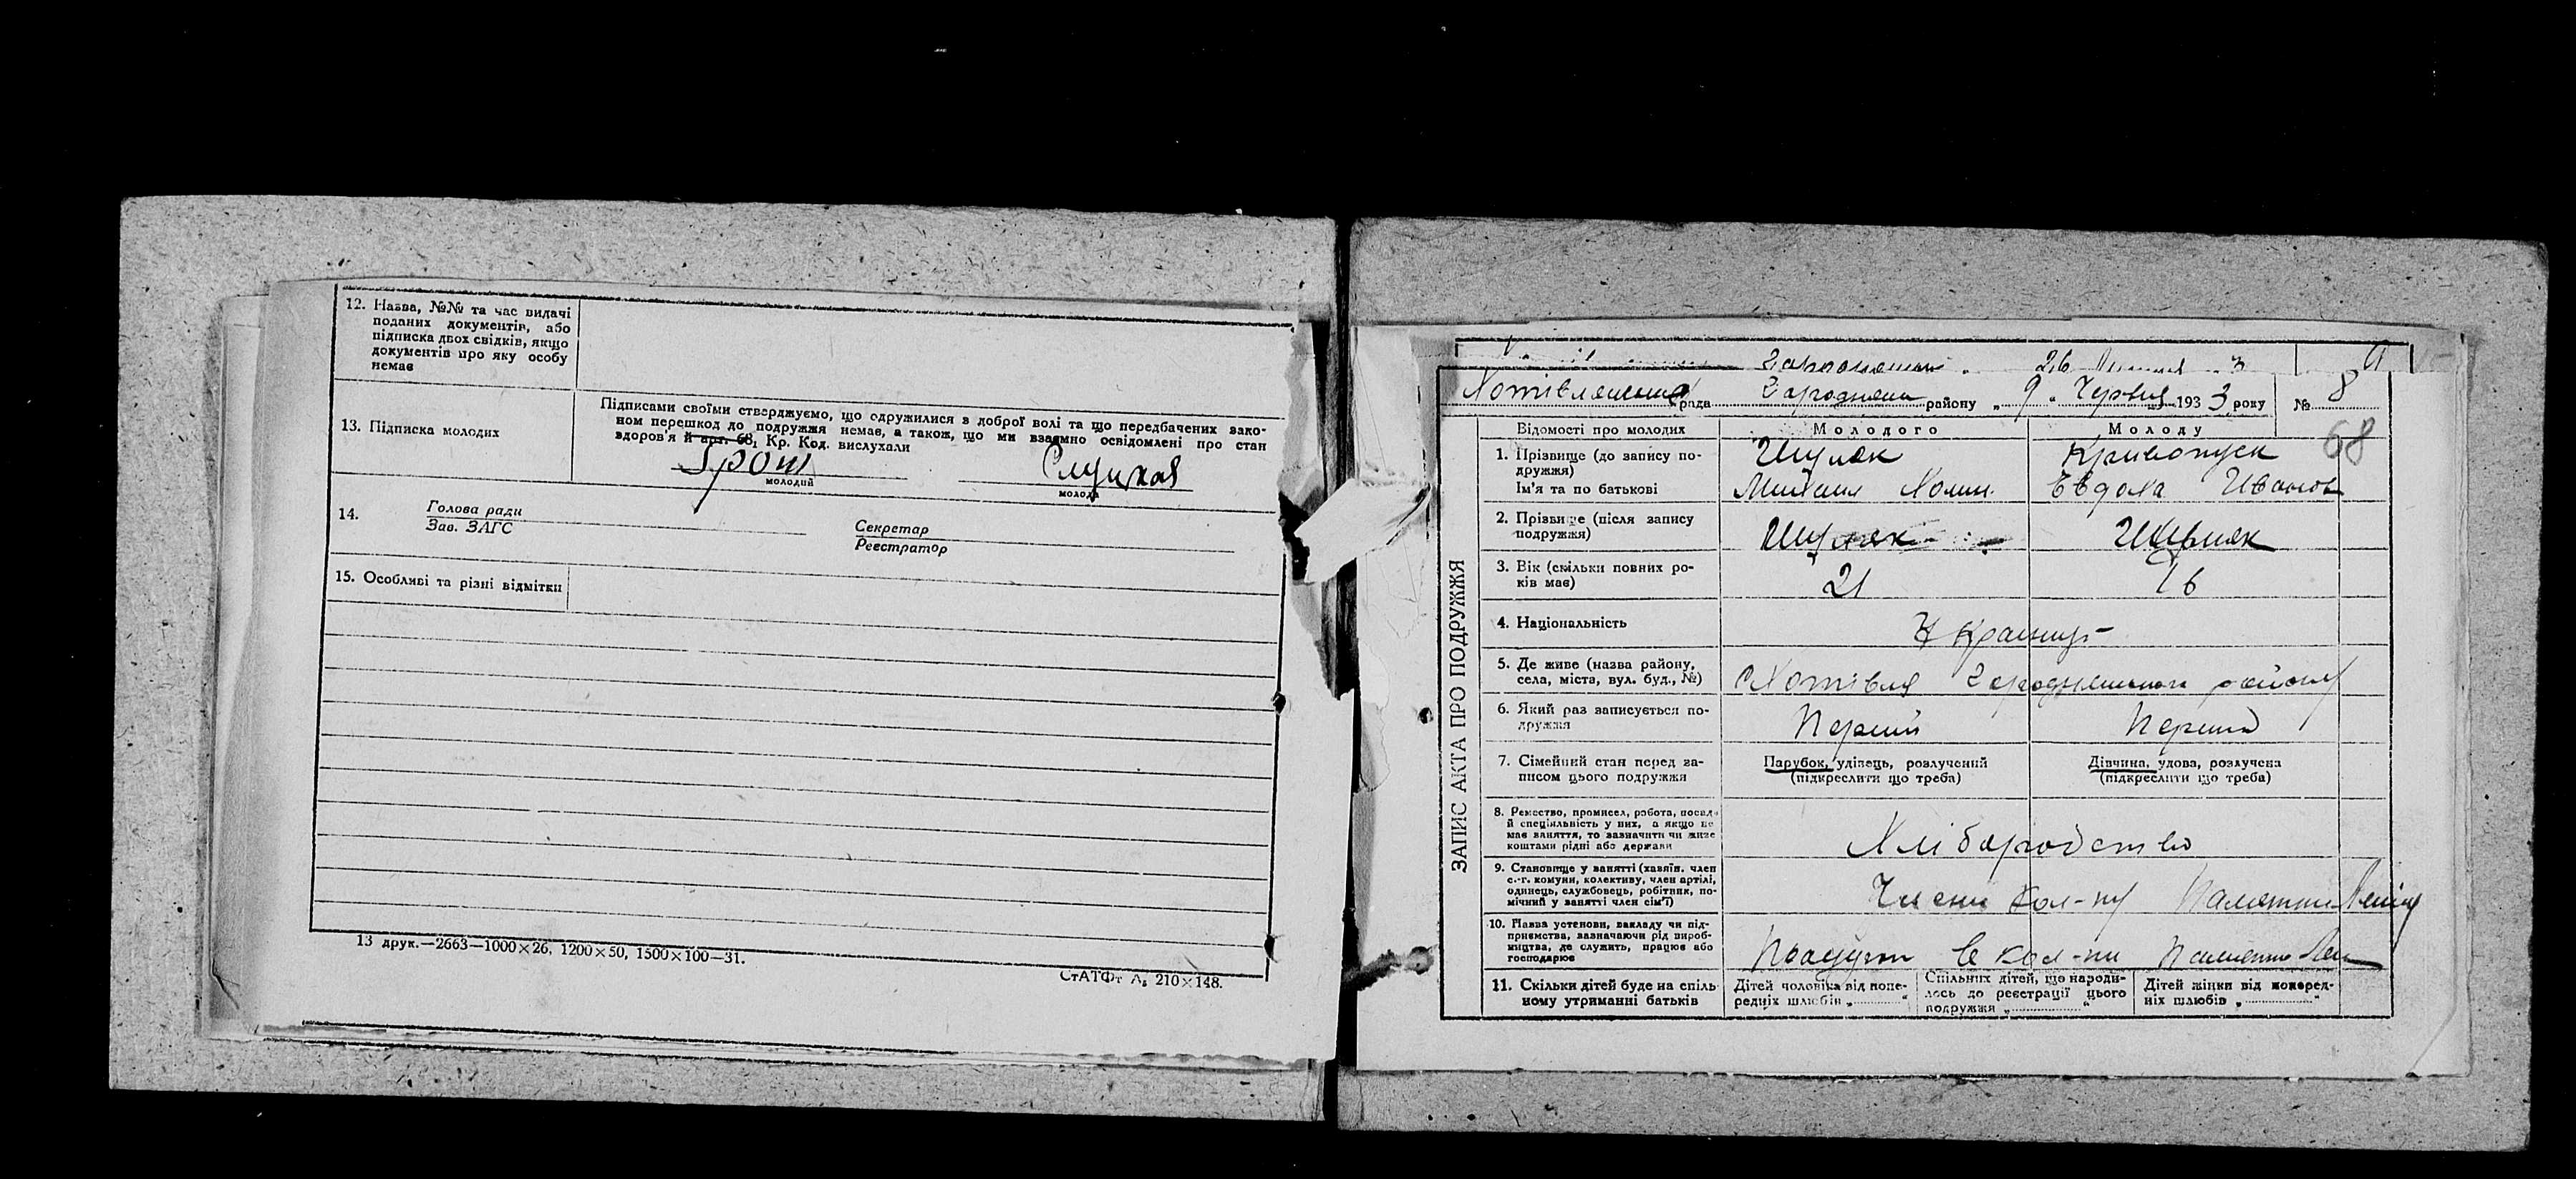 12. Назва, №№ та час видачі
поданих документів, або
підписка двох свідків, якщо
документів про яку особу
немає
13. Підписка молодих
Підписами своїми стверджуємо, що одружилися з доброї волі та що передбачених зако-
ном перешкод до подружжя немає, а також, що ми взаємно освідомлені про стан
здоров'я й арт. 68, Кр. Код. вислухали
Грош
молодий
молода
14.
Голова ради
Зав. ЗАГС
Секретар
Реєстратор
15. Особливі та різні відмітки
13 друк.—2663—1000×26, 1200×50, 1500×100—31.
СтАТФт А₅ 210×148.
26
3
рада
району „ 9 „ Червня 193 3 року
№ 8
68
ЗАПИС АКТА ПРО ПОДРУЖЖЯ
Відомості про молодих
Молодого
Молоду
1. Прізвище (до запису по-
дружжя)
Ім'я та по батькові
Шуляк
Кривопуск
Михаил
Евдокя Иванов
2. Прізвище (після запису
подружжя)
Шуляк
3. Вік (скільки повних ро-
ків має)
21
4. Національність
5. Де живе (назва району,
села, міста, вул. буд., №)
Хотівля Городнянського району
6. Який раз записується по-
дружжя
Перший
Перший
7. Сімейний стан перед за-
писом цього подружжя
Парубок, удівець, розлучений
(підкреслити що треба)
Дівчина, удова, розлучена
(підкреслити що треба)
8. Ремество, промисел, робота, посада
й спеціяльність у них, а якщо не
має заняття, то зазначити чи живе
коштами рідні або держави
Хліборобство
9. Становище у занятті (хазяїн, член
с.-г. комуни, колективу, член артілі,
одинець, службовець, робітник, по-
мічний у занятті член сім'ї)
Члени кол-пу Памятти Леніна
10. Назва установи, закладу чи під-
приємства, зазначаючи рід вироб-
ництва, де служить, працює або
господарює
Працують в кол-пи Памятти Лен
11. Скільки дітей буде на спіль-
ному утриманні батьків
Дітей чоловіка від попе-
редніх шлюбів „ “
Спільних дітей, що народи-
лось до реєстрації цього
подружжя „ “
Дітей жінки від поперед-
ніх шлюбів „ “